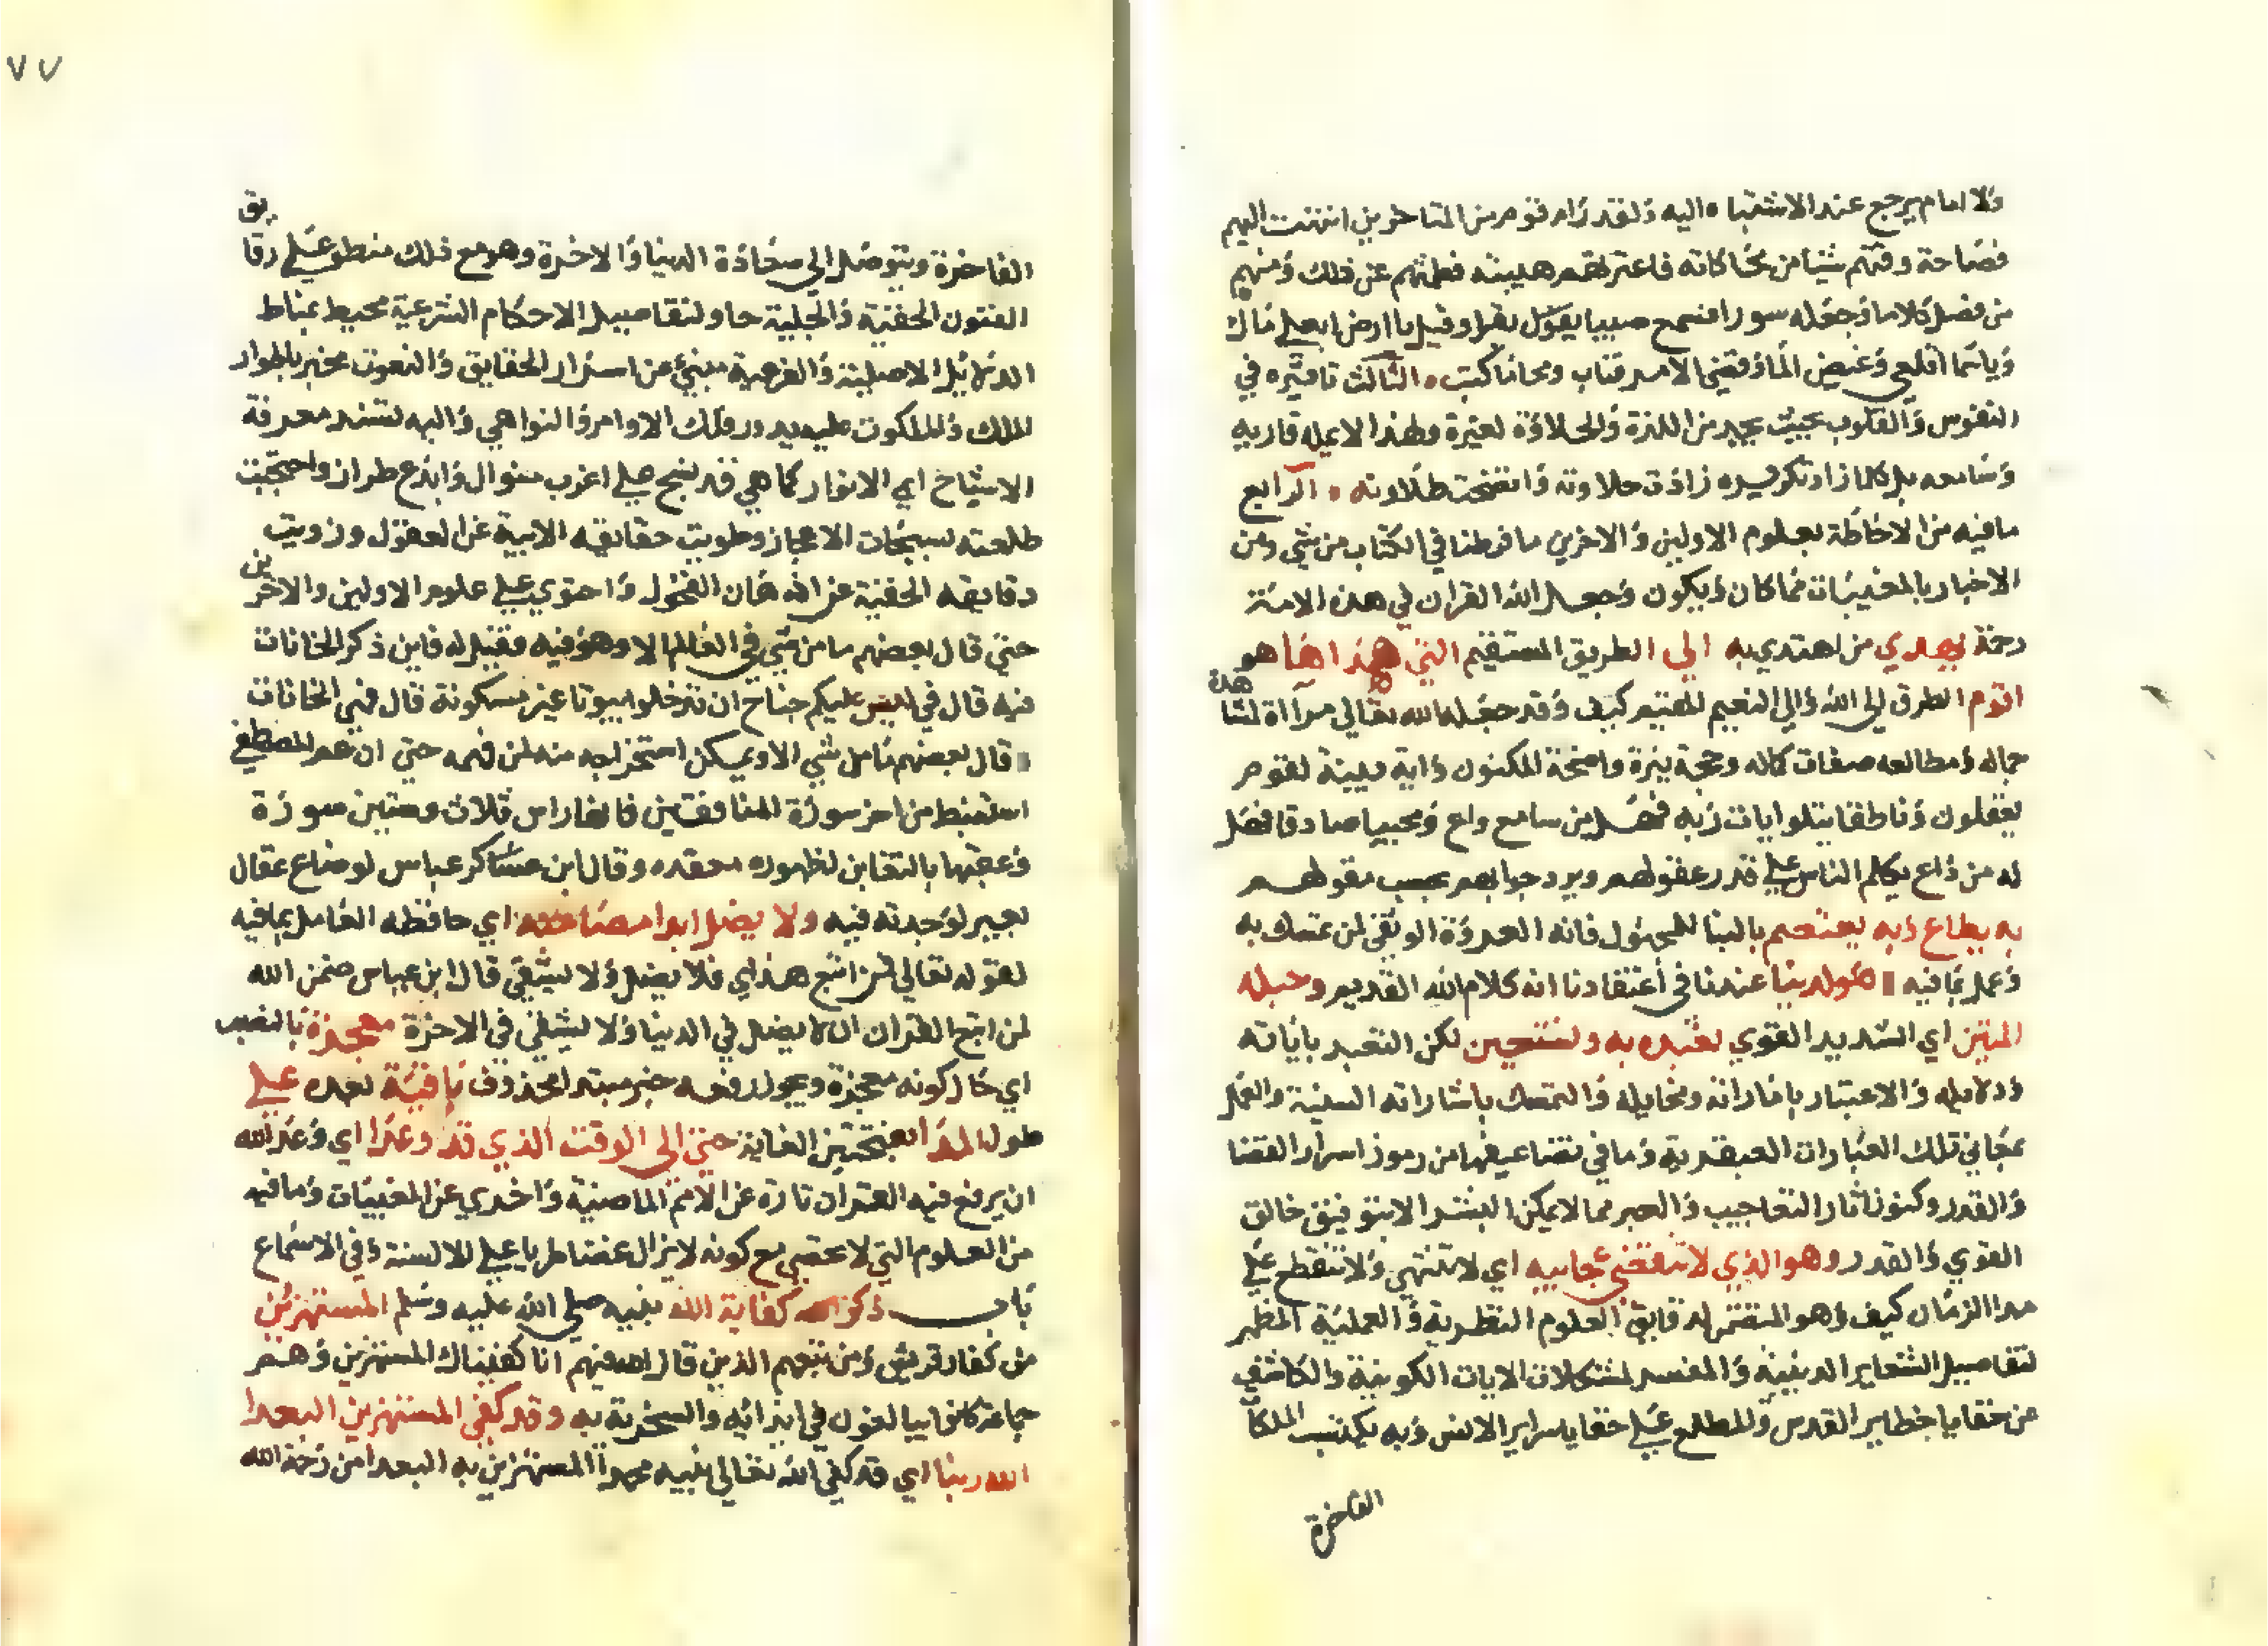 ولا امام يرجع عند الاشتباه اليه ولقد رام قوم من المتاخرين انتهت اليهم
فصاحة وقتهم شيا من محاكاته فاعترتهم هيبته فطمتهم عن ذلك ومنهم
من فصل كلاما وجعله سورا فسمع صبيا يقول يقرا وقيل يا ارض ابلعي ماك
ويا سما اقلعي وغيض الما وقضي الامر فتاب ومحا ما كتب الثالث تاثيره في
النفوس والقلوب بحيث يجد من اللذة والحلاوة لغيره وهذا لا يمله قاريه
وسامعه بل كلما زاد تكريره زادت حلاوته واتضحت طلاوته الرابع
ما فيه من الاحاطة بعلوم الاولين والاخرين ما فرطنا في الكتاب من شي ومن
الاخبار بالمغيبات مما كان ويكون وجعل الله القران في هذه الامة
رحمة يهدي من اهتدي به الي الطريق المستقيم التي هو
اقوم الطرق الي الله والي النعيم المقيم كيف وقد جعله الله تعالي مرآاة لمشاهدة
جماله ومطالعه صفات كماله وحجة نيرة واضحة المكنون واية مبينة لقوم
يعقلون وناطقا يتلو ايات ربه فهل من سامع واع ومجيبا صادقا فضل
له من داع يكلم الناس علي قدر عقولهم ويرد جوابهم بحسب مقولهم
به يطاع وبه يعتصم بالبنا للمجهول فانه العروة الوثقي لمن تمسك به
وعمل بما فيه قول ربنا عندنا في اعتقادنا انه كلام الله القديم وحبله
المتين اي الشديد القوي نعتبره به ولنستعين لكن التعبد باياته
ودلايله والاعتبار باماراته ومخايله والتمسك باشاراته السنية والعمل
بمجاني تلك العبارات العبقرية وما في تضاعيفها من رموز اسرار القضا
والقدر وكنوز اثار التعاجيب والعبر مما لا يمكن البشر الا بتوفيق خالق
القوي والقدر وهو الذي لا تنقضي عجايبه اي لا تنتهي ولا تنقطع علي
مدا الزمان كيف وهو المتضمن لدقايق العلوم النظرية والعملية المظهر
لتفاصيل الشعاير الدينية والمفسر لمشكلات الايات الكونية والكاشف
من خفايا خطاير القدس والمطلع علي خفايا سراير الانس وبه يكتسب الملكا
الفاخرة
٧٧
الفاخرة ويتوصل الي سعادة الدنيا والاخرة وهو مع ذلك منطو علي رقايق
الفنون الخفية والجلية حاو لتفاصيل الاحكام الشرعية محيط بمناط
الدلايل الاصلية والفرعية منبئ عن اسرار الحقايق والنعوت مخبر باطوار
الملك والملكوت عليه يدور فلك الاوامر والنواهي واليه يستند معرفة
الاشياخ اي الانوار كما هي قد نسج علي اغرب منوال وابدع طراز واحتجبت
طلعته بسبحات الاعجاز وطويت حقايقه الابية عن العقول وزويت
دقايقه الخفية عن اذهان الفحول واحتوي علي علوم الاولين والاخرين
حتي قال بعضهم ما من شي في العالم الا وهو فيه فقيل له فاين ذكر الخانات
فيه قال في ليس عليكم جناح ان تدخلوا بيوتا غير مسكونة قال فهي الخانات
قال بعضهم ما من شي الا ويمكن استخراجه منه لمن فهمه حتي ان عمر المصطفي
استنبط من اخر سورة المنافقين فانها راس ثلاث وستين سورة
وعقبها بالتغابن لظهوره بفقده وقال ابن عساكر عباس لو ضاع عقال
بعير لوجدته فيه ولا يضل ابدا مصاحبه اي حافظه العامل بما فيه
لقوله تعالي فمن اتبع هداي فلا يضل ولا يشقي قال ابن عباس ضمن الله
لمن اتبع القران ان لا يضل في الدنيا ولا يشقي في الاخرة معجزة بالنصب
اي حال كونه معجزة ويجوز رفعه خبر مبتدا محذوف باقية بعده علي
طول المدا بفتحتين الغاية حتي الي الوقت الذي قد وعدا اي وعد الله
ان يرفع فيه القران تارة عن الامم الماضية واخري عن المغيبات وما فيه
من العلوم التي لا تحصي مع كونه لا يزال غضا طريا علي الالسنة وفي الاسماع
باب ذكر كفاية الله نبيه صلي الله عليه وسلم المستهزئين
من كفار قريش ومن تبعهم الذين قال الله فيهم انا كفيناك المستهزين وهم
جماعة كانوا يبالغون في ايذائه والسخرية به وقد كفي المستهزين البعدا
الله ربنا اي قد كفي الله تعالي نبيه محمدا المستهزين به البعدا من رحمة الله